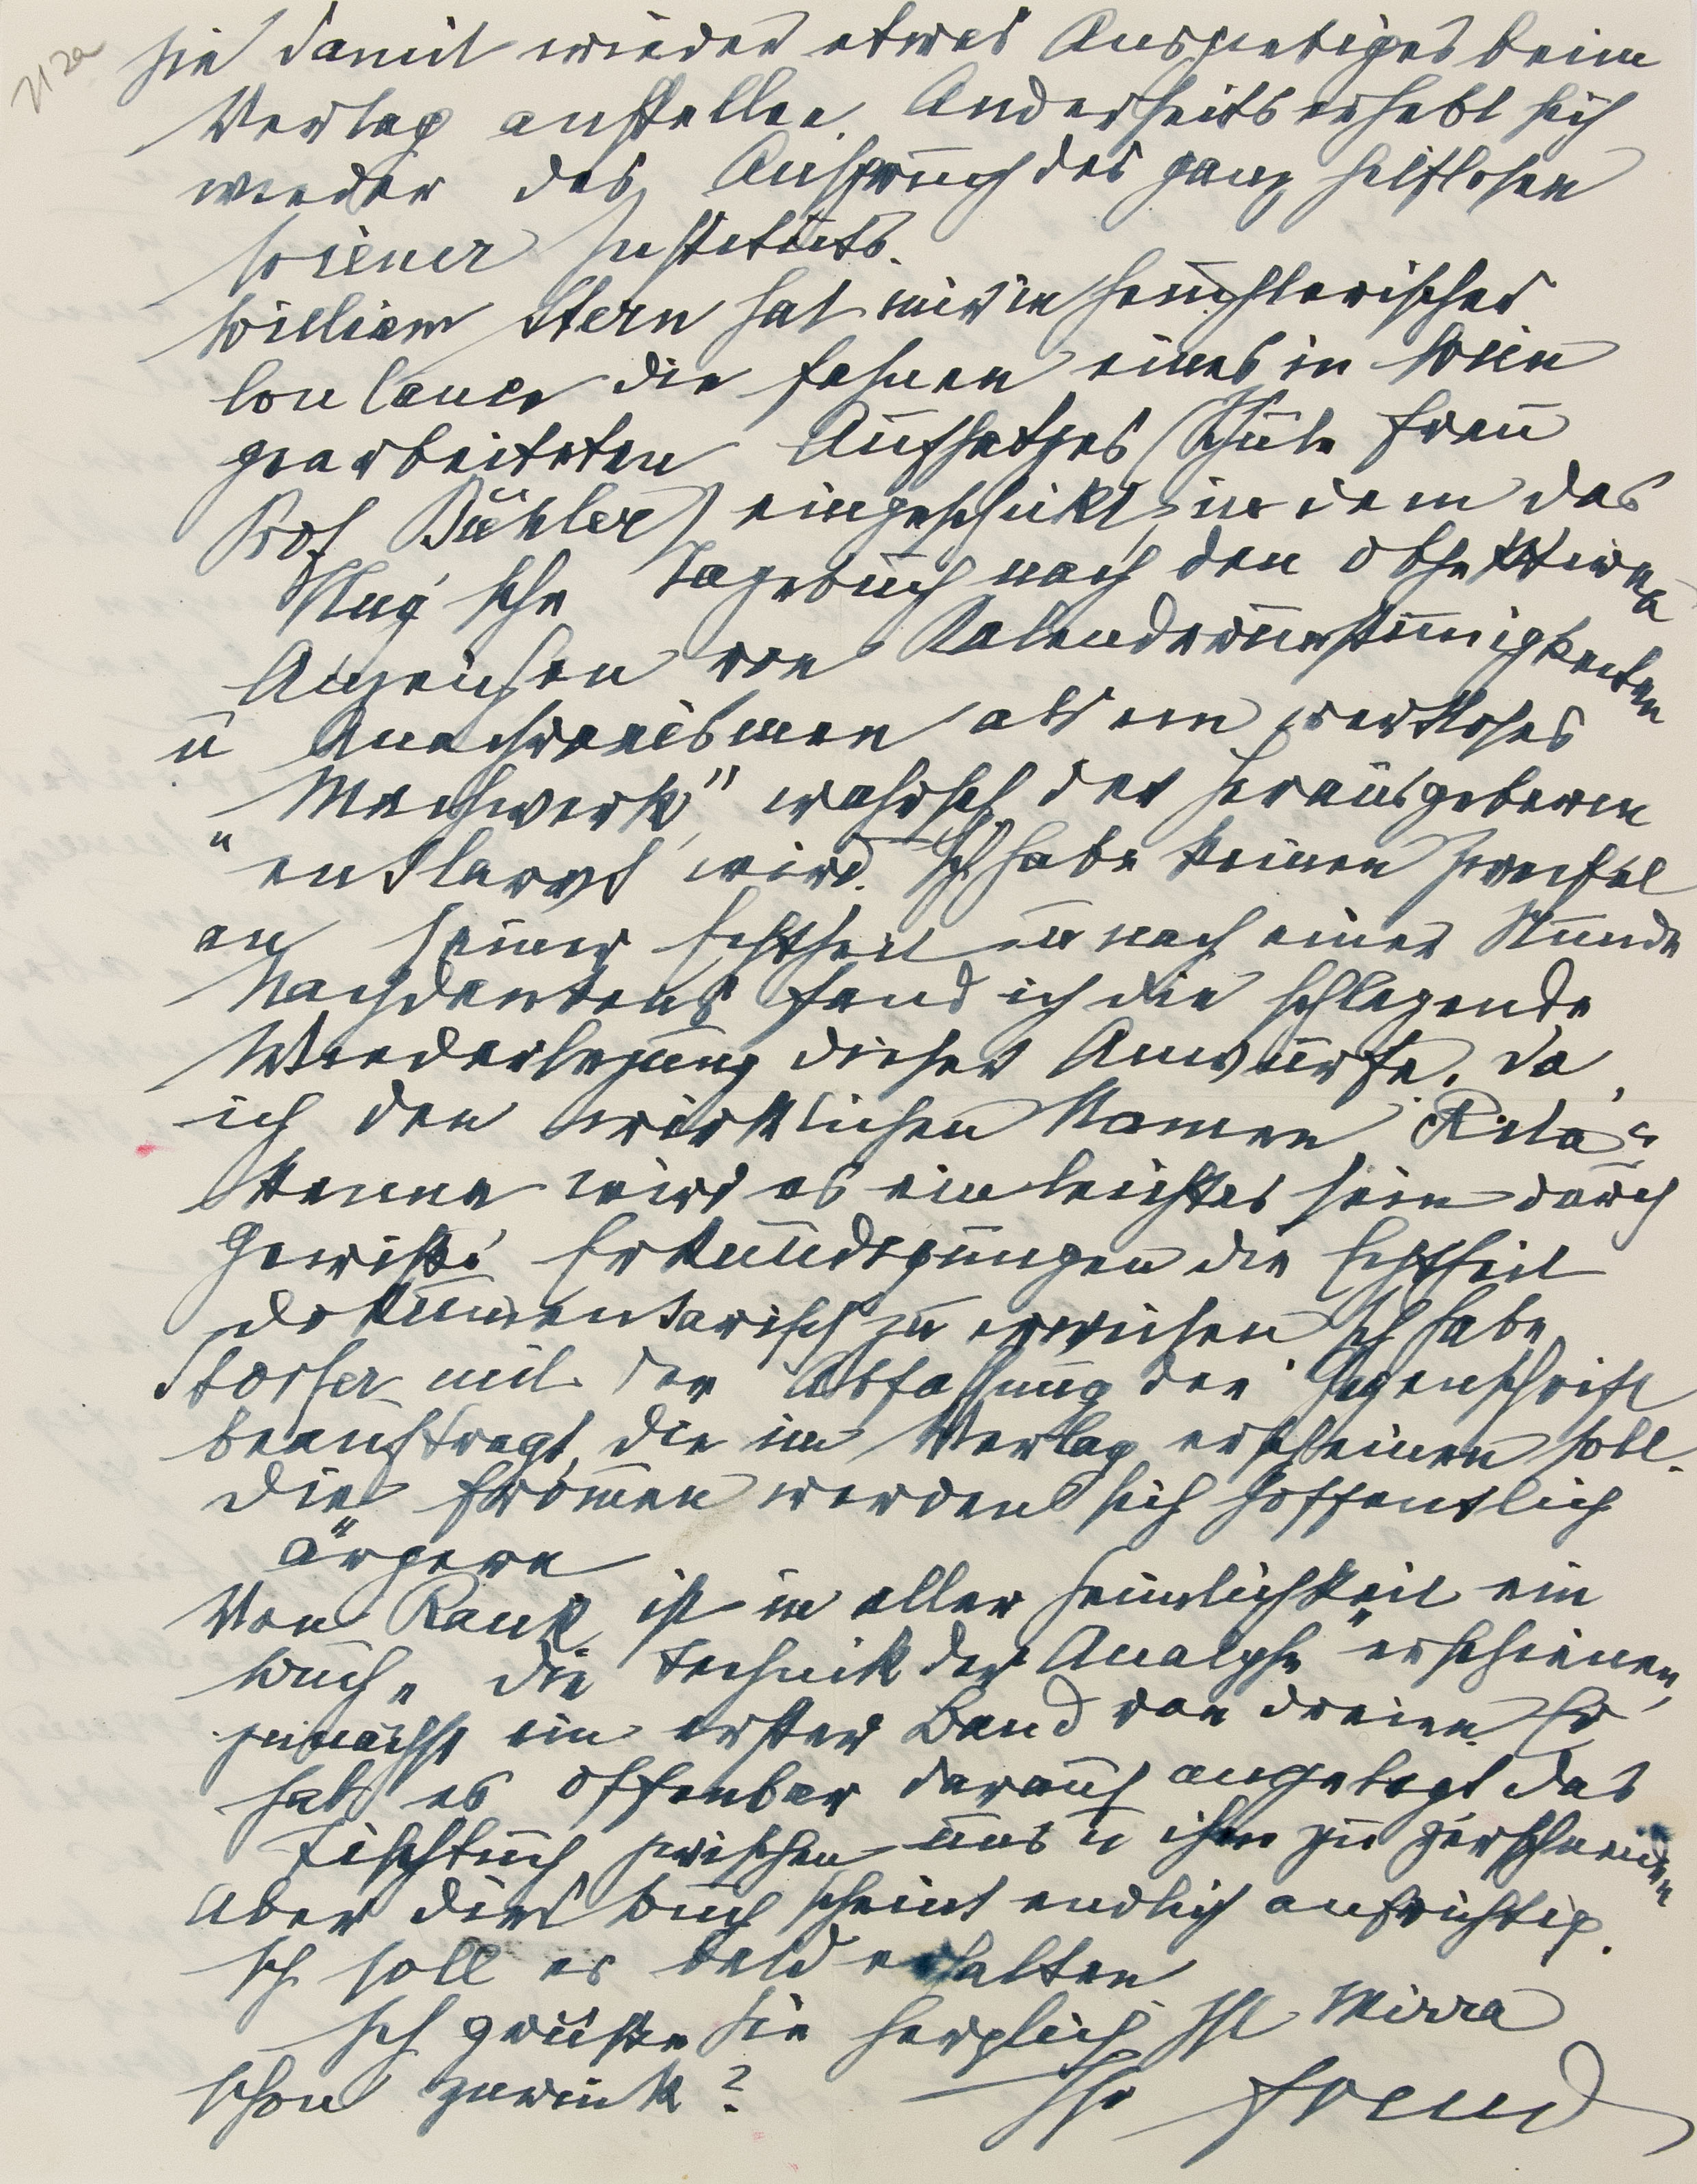 212a
Sie damit wieder etwas Ausgiebiges beim
Verlag anstellen. Anderseits erhebt sich
wieder der Anspruch des ganz hilflosen
Wiener Instituts.
William Stern hat mir in heuchlerischer
Coulance die Fahnen eines in Wien
gearbeiteten Aufsatzes (Schule Frau
Prof Bühler) eingeschickt, in dem das
Hug'sche Tagebuch nach den objektiven
Anzeichen von Kalenderunstimmigkeiten
u Anachronismen als ein wertloses
Machwerk" wahrsch. der Herausgeberin
"entlarvt wird. Ich habe keinen Zweifel
an seiner Echtheit u nach einer Stunde
Nachdenkens fand ich die schlagende
Wiederlegung dieser Anwürfe. Da
ich den wirklichen Namen „Rita"
kenne wird es ein leichtes sein durch
gewisse Erkundigungen die Echtheit
dokumentarisch zu erweisen. Ich habe
Storfer mit der Abfassung der Gegenschrift
beauftragt, die im Verlag erscheinen soll.
Die Frommen werden sich hoffentlich
ärgern
Von Rank ist in aller Heimlichkeit ein
Buch „die Technik der Analyse" erschienen,
zunächst ein erster Band von dreien. Er
hat es offenbar darauf angelegt das
Tischtuch zwischen uns u ihm zu zerschneiden
Aber dies Buch scheint endlich aufrichtig.
Ich soll es bald erhalten
Ich grüße Sie herzlich. Ist Mirra
schon zurück? Ihr Freud